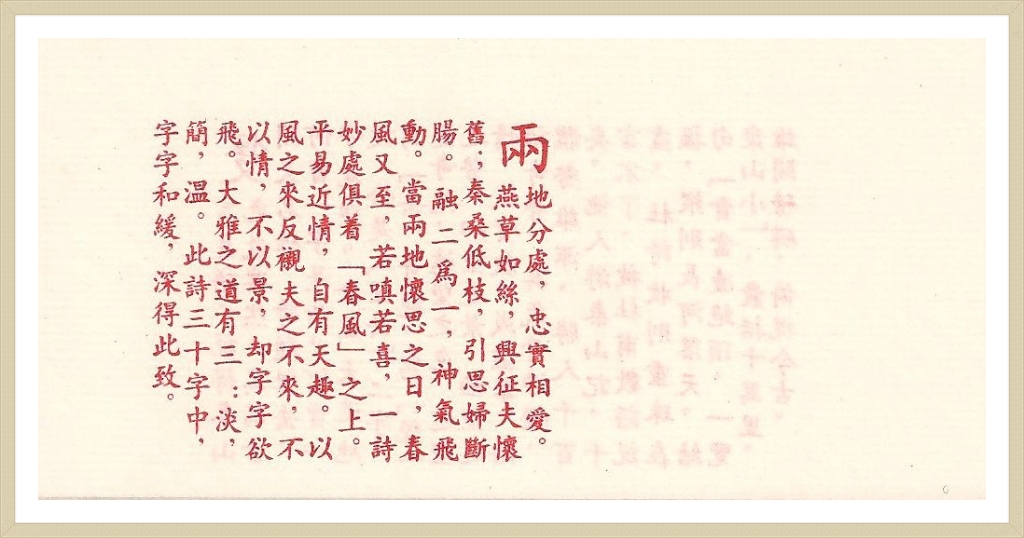 兩地分處，忠實相愛。
燕草如絲，興征夫懷
舊；秦桑低枝，引思婦斷
腸。融二爲一，神氣飛
動。當兩地懷思之日，春
風又至，若嗔若喜，一詩
妙處俱着「春風」之上。
平易近情，自有天趣。以
風之來反襯夫之不來，不
以情，不以景，却字字欲
飛。大雅之道有三：淡，
簡，温。此詩三十字中，
字字和緩，深得此致。